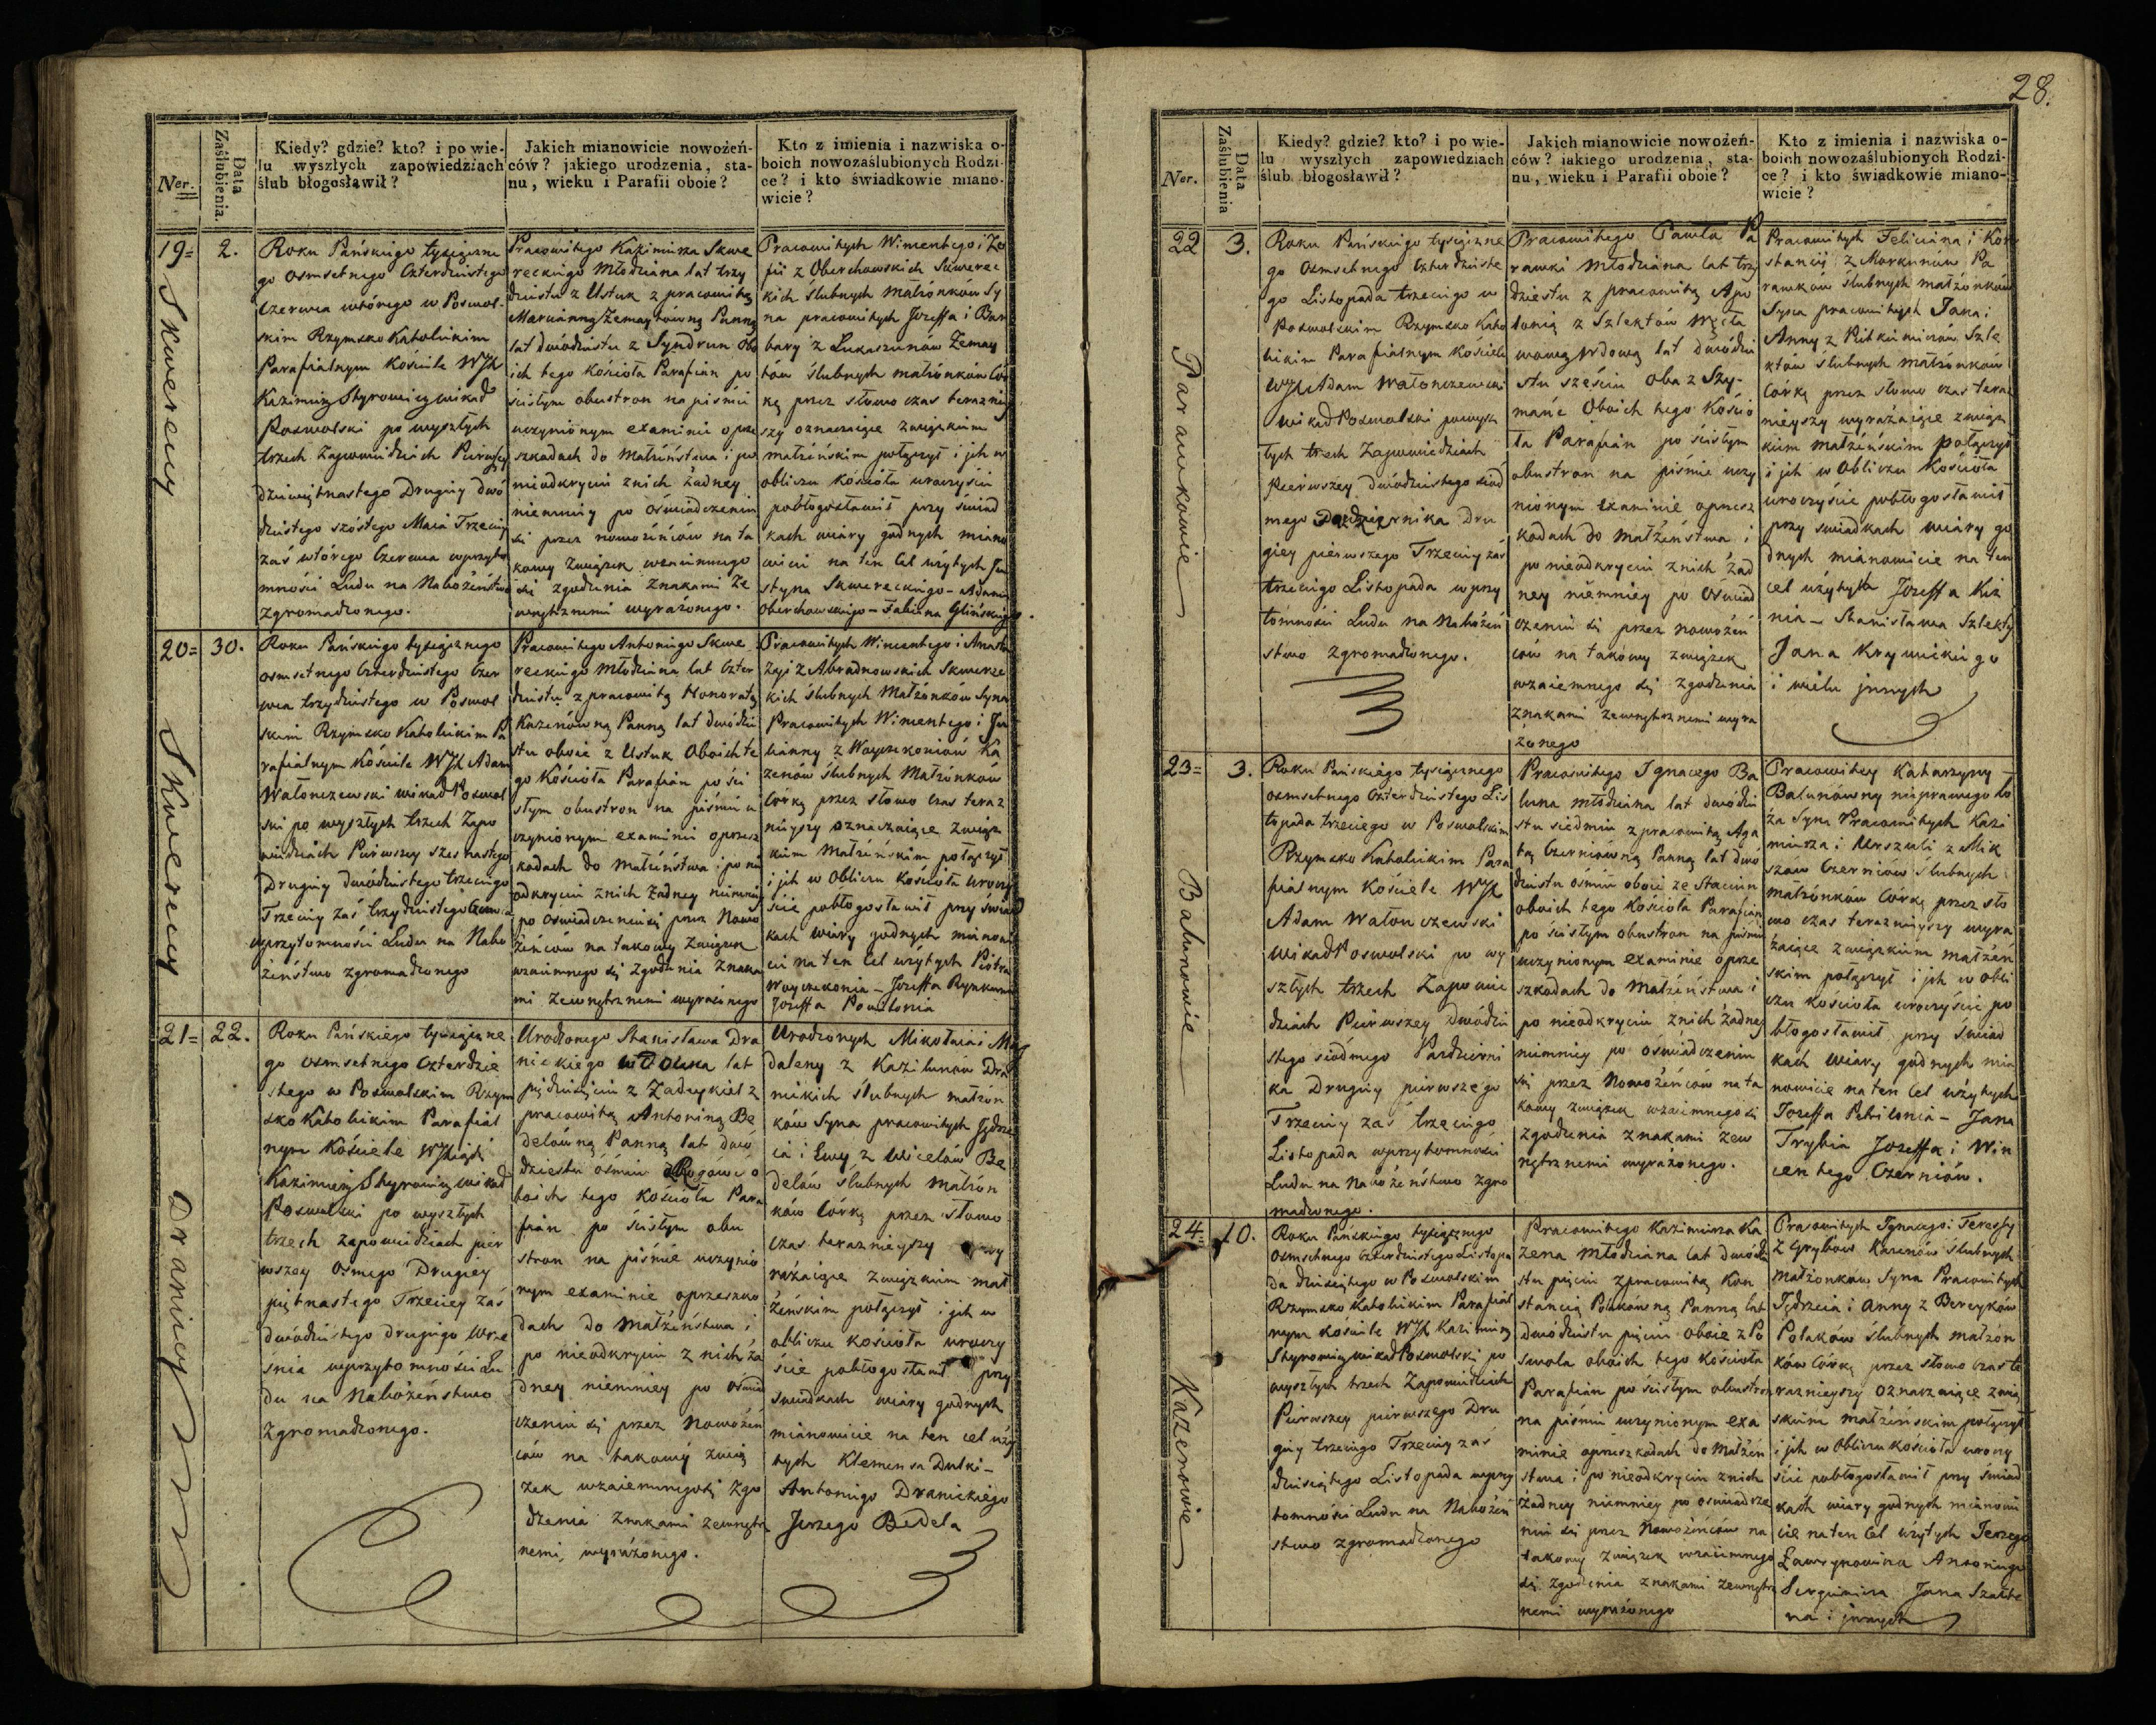 28.
Ner.
Data Zaślubienia.
Kiedy? gdzie? kto? i po wie-
lu wyszłych zapowiedziach
ślub błogosławił?
Jakich mianowicie nowożeń-
ców? jakiego urodzenia, sta-
nu, wieku i Parafii oboie?
Kto z imienia i nazwiska o-
boich nowozaślubionych Rodzi-
ce? i kto świadkowie miano-
wicie?
19=
Skwereccy
2.
Roku Pańskiego tysiączne
go osmsetnego Czterdziestego
Czerwca wtórego w Poswol-
skim Rzymsko Katolickim
Parafialnym Kościele WJX
Kazimierz Styrowicz wikad
Poswolski po wyszłych
trzech Zapowiedziach Pierwszey
dziewiętnastego Drugiey dwó
dziestego szóstego Maia Trzeciey
zaś wtórego Czerwca w przyto
mności Ludu na Nabożeństwo
zgromadzonego.
Pracowitego Kazimierza Skwe
reckiego Młodziana lat trzy
dziestu z Ustuk z pracowitą
Maryanną Zemaytówną Panną
lat dwódziestu z Syndrun Obo
ich tego kościoła Parafian po
ścisłym obustron na piśmie
uczynionym examinie o prze
szkodach do Małżeństwa i po
nieodkryciu z nich żadney
niemniey po oświadczeniu
się przez nowożeńców na ta
kowy związek wzaiemnego
się zgodzenia znakami ze
wnętrznemi wyrażonego.
Pracowitych Wincentego i Zo
fii z Oberchowskich Skwerec
kich ślubnych małżonków Sy
na pracowitych Jozeffa i Bar
bary z Łukaszunów Zemay
tów ślubnych małżonków Cór
kę przez słowo czas teraźniey
szy oznaczaiące związkiem
małżeńskim połączył i jch w
obliczu kościoła uroczyście
pobłogosławił przy świad
kach wiary godnych miano
wicie na ten cel użytych Ju
styna Skwereckiego - Adama
Oberchowskiego - Fabiana Glińskiego.
20=
Skwereccy
30.
Roku Pańskiego tysiącznego
osmsetnego Czterdziestego Czer
wca trzydziestego w Poswol
skim Rzymsko Katolickim Pa
rafialnym Kościele WJX Adam
Wałonczewski wikad Poswol
ski po wyszłych trzech Zapo
wiedziach Pierwszey szesnastego
Drugiey dwódziestego trzeciego
Trzeciey zaś trzydziestego Czerwca
w przytomności Ludu na Nabo
żeństwo zgromadzonego
Pracowitego Antoniego Skwe
reckiego Młodziana lat Czter
dziestu z pracowitą Honoratą
Kazenówną Panną lat dwódzie
stu oboie z Ustuk Oboich te
go Kościoła Parafian po ści
słym obustron na piśmie u
czynionym examinie o przesz
kodach do Małżeństwa i po nie
odkryciu z nich żadney niemniey
po oświadczeniu się przez Nowo
żeńców na takowy związek
wzaiemnego się zgodzenia znaka
mi zewnętrznemi wyrażonego
Pracowitych Wincentego i Anasta
zyi z Abradnowskich Skwerec
kich ślubnych Małżonków Syna
Pracowitych Wincentego i Ju
lianny z Woyczekoniów Ka
zenów ślubnych Małżonków
Córkę przez słowo czas teraz
nieyszy oznaczaiące związ
kiem Małżeńskim połączył
i jch w Obliczu Kościoła uroczy
ście pobłogosławił przy świad
kach wiary godnych mianowi
cie na ten Cel użytych Piotra
Woyczekonia - Jozeffa
Jozeffa Powilonia
21=
Draniccy
22.
Roku Pańskiego tysiączne
go osmsetnego Czterdzie
stego w Poswolskim Rzym
sko Katolickim Parafial
nym Kościele WJXiądz
Kazimierz Styrowicz wikad
Poswolski po wyszłych
trzech zapowiedziach pier
wszey Osmego Drugiey
piętnastego Trzeciey zaś
dwódziestego drugiego Wrze
śnia w przytomności Lu
du na Nabożeństwo
zgromadzonego.
Urodzonego Stanisława Dra
nickiego wdowca lat
pięćdziesięciu z Zadeykiel z
pracowitą Antoniną Be
delówną Panną lat dwó
dziestu ośmiu z Rogowo o
boich tego Kościoła Para
fian po ścisłym obu
stron na piśmie uczynio
nym examinie o przeszko
dach do Małżeństwa i
po nieodkryciu z nich ża
dney niemniey po oświad
czeniu się przez Nowożeń
ców na takowy zwią
zek wzaiemnego się zgo
dzenia znakami zewnętrz
nemi wyrażonego.
Urodzonych Mikołaia i Mag
daleny z Kazilunów Dra
nickich ślubnych małżon
ków Syna pracowitych Jędrze
ia i Ewy z Wicelów Be
delów ślubnych Małżon
ków Córkę przez słowo
czas teraznieyszy wy
rażaiące związkiem mał
żeńskim połączył i jch w
obliczu kościoła uroczy
ście pobłogosławił przy
świadkach wiary godnych
mianowicie na ten cel uży
tych Klemensa Dulki -
Antoniego Dranickiego
Jerzego Bedela
Ner.
Data Zaślubienia
Kiedy? gdzie? kto? i po wie-
lu wyszłych zapowiedziach
ślub błogosławił?
Jakich mianowicie nowożeń-
ców? iakiego urodzenia, sta-
nu, wieku i Parafii oboie?
Kto z imienia i nazwiska o-
boich nowozaślubionych Rodzi-
ce? i kto świadkowie miano-
wicie?
22
Parawkowie
3.
Roku Pańskiego tysiączne
go Osmsetnego Czterdzieste
go Listopada trzeciego w
Poswolskim Rzymsko Kato
lickim Parafialnym Kościele
WJX Adam Wałonczewski
wikad Poswolski po wysz
łych trzech Zapowiedziach
Pierwszey dwódziestego siód
mego Października Dru
giey pierwszego Trzeciey zaś
trzeciego Listopada w przy
tomności Ludu na Nabożeń
stwo zgromadzonego.
Pracowitego Pawła Pa
rawki Młodziana lat trzy
dziestu z pracowitą Apo
lonią z Szlektów
wową wdową lat dwódzie
stu sześciu oba z Szy-
mańc Oboich tego Kościo
ła Parafian po ścisłym
obustron na piśmie uczy
nionym examinie o przesz
kodach do Małżeństwa i
po nieodkryciu z nich żad
ney niemniey po Oświad
czeniu się przez nowożeń
ców na takowy związek
wzaiemnego się zgodzenia
znakami zewnętrznemi wyra
żonego
Pracowitych Feliciana i Kon
stancii z Markunów Pa
rawków ślubnych małżonków
Syna pracowitych Jana i
Anny z Szle
któw ślubnych małżonków
Córkę przez słowo czas teraz
nieyszy wyrażaiące związ
kiem małżeńskim połączył
i jch w Obliczu Kościoła
uroczyście pobłogosławił
przy świadkach wiary go
dnych mianowicie na ten
cel użytych Jozeffa Kiz
nia - Stanisława Szlekty
Jana Krywickiego
i wielu jnnych
23=
Balunowie
3.
Roku Pańskiego tysiącznego
osmsetnego Czterdziestego Lis
topada trzeciego w Poswolskim
Rzymsko Katolickim Para
fialnym Kościele WJX
Adam Wałonczewski
wikad Poswolski po wy
szłych trzech Zapowie
dziach Pierwszey dwódzie
stego siódmego Październi
ka Drugiey pierwszego
Trzeciey zaś trzeciego
Listopada w przytomności
Ludu na Nabożeństwo zgro
madzonego.
Pracowitego Ignacego Ba
luna młodziana lat dwódzie
stu siedmiu z pracowitą Aga
tą Czerniówną Panną lat dwó
dziestu ośmiu oboie ze Staciun
oboich tego Kościoła Parafian
po ścisłym obustron na piśmie
uczynionym examinie o prze
szkodach do Małżeństwa i
po nieodkryciu z nich żadney
niemniey po oświadczeniu
się przez Nowożeńców na ta
kowy związek wzaiemnego się
zgodzenia znakami zew
nętrznemi wyrażonego.
Pracowitey Katarzyny
Balunówny nieprawego ło
ża Syna Pracowitych Kazi
mierza i Urszuli z Mik
szów Czerniów ślubnych
małżonków Córkę przez sło
wo czas teraznieyszy wyra
żaiące związkiem małżeń
skim połączył i jch w obli
czu kościoła uroczyście po
błogosławił przy świad
kach wiary godnych mia
nowicie na ten Cel użytych
Jozeffa Petrilonia - Jana
Trybia Jozeffa i Win
centego Czerniów.
24=
Kazenowie
10.
Roku Pańskiego tysiącznego
Osmsetnego Czterdziestego Listopa
da dziesiątego w Poswolskim
Rzymsko Katolickim Parafial
nym kościele WJX Kazimierz
Styrowicz wikad Poswolski po
wyszłych trzech Zapowiedziach
Pierwszey pierwszego Dru
giey trzeciego Trzeciey zaś
dziesiątego Listopada w przy
tomności Ludu na Nabożeń
stwo zgromadzonego
Pracowitego Kazimierza Ka
zena młodziana lat dwódzie
stu pięciu z pracowitą Kon
stancią Polakówną Panną lat
dwódziestu pięciu oboie z Po
swola oboich tego kościoła
Parafian po ścisłym obustron
na piśmie uczynionym exa
minie o przeszkodach do Małżeń
stwa i po nieodkryciu z nich
żadney niemniey po oświadcze
niu się przez Nowożeńców na
takowy związek wzaiemnego
się zgodzenia znakami zewnętrz
nemi wyrażonego
Pracowitych Ignacego i Teressy
z Grybów Kazenów ślubnych
Małżonków Syna Pracowitych
Jędrzeia i Anny z Bercyków
Polaków ślubnych małżon
ków Córkę przez słowo czas te
raznieyszy oznaczaiące związ
kiem małżeńskim połączył
i jch w Obliczu kościoła uroczy
ście pobłogosławił przy świad
kach wiary godnych mianowi
cie na ten Cel użytych Jerzego
Ławrynowicza Antoniego
Jana
na i jnnych